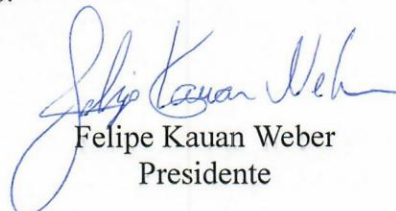 Felipe Kauan Weber
Felipe Kauan Weber
Presidente